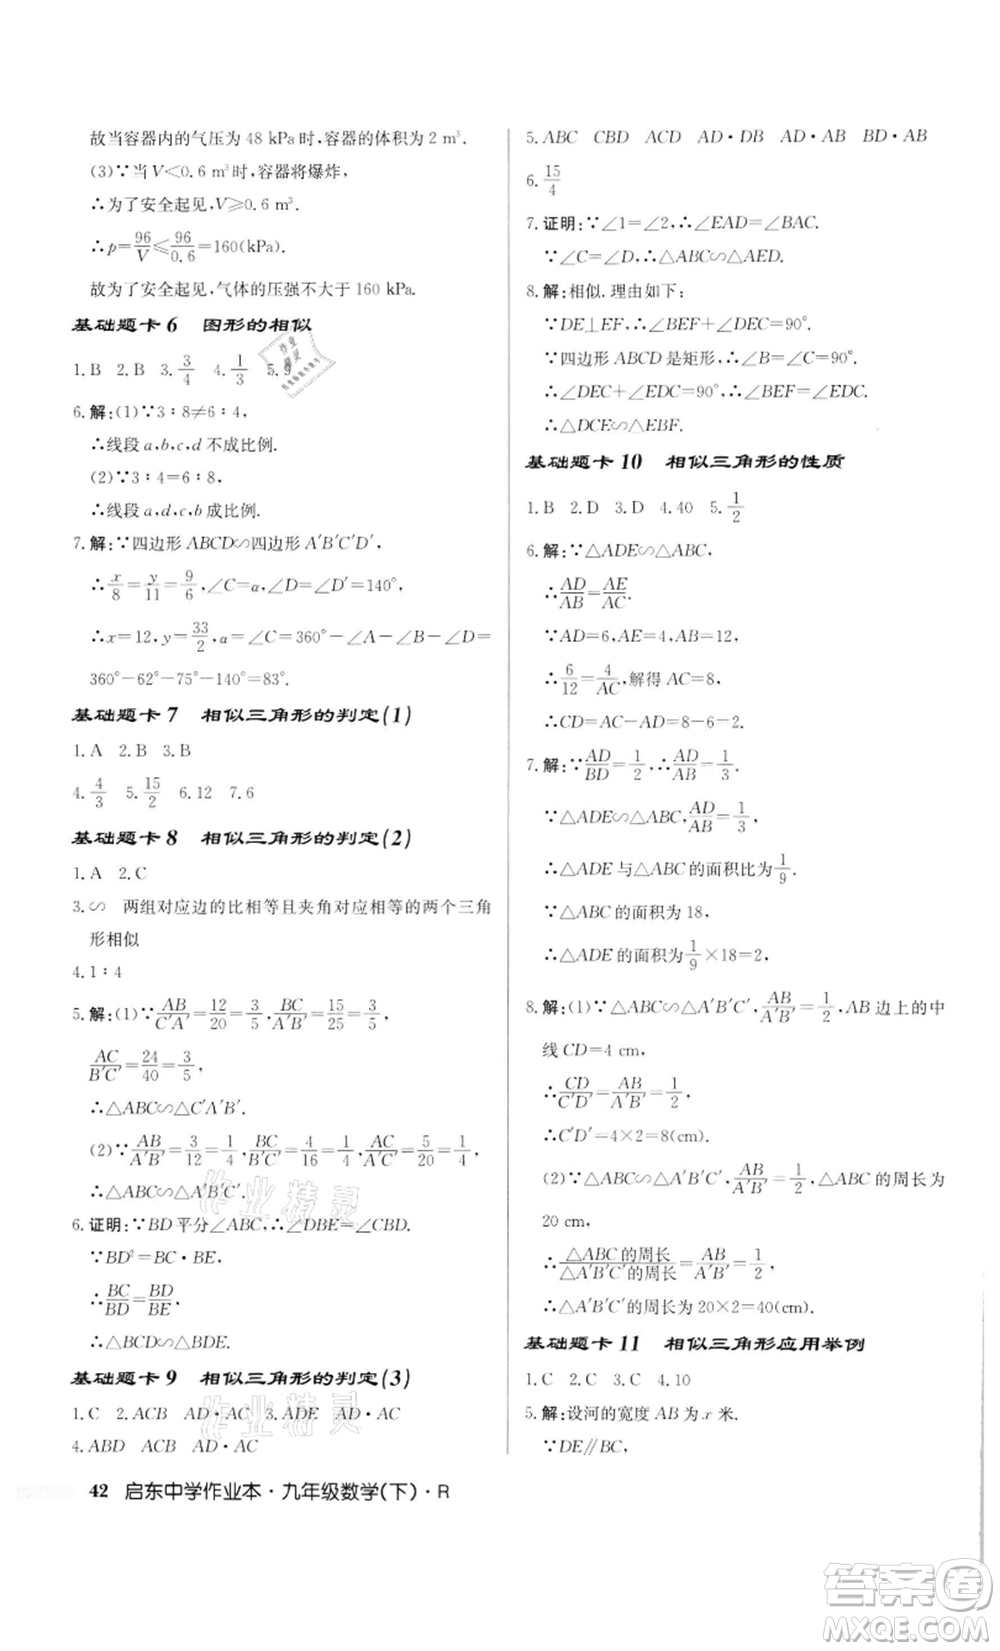 故当容器内的气压为 48 kPa 时,容器的体积为 2 m³.
(3)∵当 V<0.6 m³时,容器将爆炸,
∴为了安全起见,V≥0.6 m³.
∴p=96/V≤96/0.6=160(kPa).
故为了安全起见,气体的压强不大于 160 kPa.
基础题卡 6 图形的相似
1.B 2.B 3.3/4 4.1/3 5.9
6.解:(1)∵3∶8≠6∶4,
∴线段 a,b,c,d 不成比例.
(2)∵3∶4=6∶8,
∴线段 a,d,c,b 成比例.
7.解:∵四边形 ABCD∽四边形 A′B′C′D′,
∴x/8=y/11=9/6,∠C=α,∠D=∠D′=140°.
∴x=12,y=33/2,α=∠C=360°-∠A-∠B-∠D=
360°-62°-75°-140°=83°.
基础题卡 7 相似三角形的判定(1)
1.A 2.B 3.B
4.4/3 5.15/2 6.12 7.6
基础题卡 8 相似三角形的判定(2)
1.A 2.C
3.∽ 两组对应边的比相等且夹角对应相等的两个三角
形相似
4.1∶4
5.解:(1)∵AB/C′A′=12/20=3/5,BC/A′B′=15/25=3/5,
AC/B′C′=24/40=3/5,
∴△ABC∽△C′A′B′.
(2)∵AB/A′B′=3/12=1/4,BC/B′C′=4/16=1/4,AC/A′C′=5/20=1/4,
∴△ABC∽△A′B′C′.
6.证明:∵BD 平分∠ABC,∴∠DBE=∠CBD.
∵BD²=BC·BE,
∴BC/BD=BD/BE,
∴△BCD∽△BDE.
基础题卡 9 相似三角形的判定(3)
1.C 2.ACB AD·AC 3.ADE ACB
4.ABD ACB AD·AC
42 启东中学作业本·九年级数学(下)·R
5.ABC CBD ACD AD·DB AD·AB BD·AB
6.15/4
7.证明:∵∠1=∠2,∴∠EAD=∠BAC.
∵∠C=∠D,∴△ABC∽△AED.
8.解:相似.理由如下:
∵DE⊥EF,∴∠BEF+∠DEC=90°.
∵四边形 ABCD 是矩形,∴∠B=∠C=90°,
∴∠DEC+∠CDE=90°,∴∠BEF=∠CDE,
∴△DCE∽△EBF.
基础题卡 10 相似三角形的性质
1.B 2.D 3.D 4.40 5.1/2
6.解:∵△ADE∽△ABC,
∴AD/AB=AE/AC.
∵AD=6,AE=4,AB=12,
∴6/12=4/AC,解得 AC=8,
∴CD=AC-AD=8-6=2.
7.解:∵AD/BD=1/2,∴AD/AB=1/3.
∵△ADE∽△ABC,AD/AB=1/3,
∴△ADE 与△ABC 的面积比为1/9.
∵△ABC 的面积为 18,
∴△ADE 的面积为1/9×18=2,
8.解:(1)∵△ABC∽△A′B′C′,AB/A′B′=1/2,AB 边上的中
线 CD=4 cm,
∴CD/C′D′=AB/A′B′=1/2
∴C′D′=4×2=8(cm).
(2)∵△ABC∽△A′B′C′,AB/A′B′=1/2,△ABC 的周长为
20 cm,
∴△ABC 的周长/△A′B′C′的周长=AB/A′B′=1/2
∴△A′B′C′的周长为 20×2=40(cm).
基础题卡 11 相似三角形应用举例
1.C 2.C 3.C 4.10
5.解:设河的宽度 AB 为 x 米.
∵DE∥BC,
作业精灵
作业精灵
作业精灵
答案圈
MXQE.COM